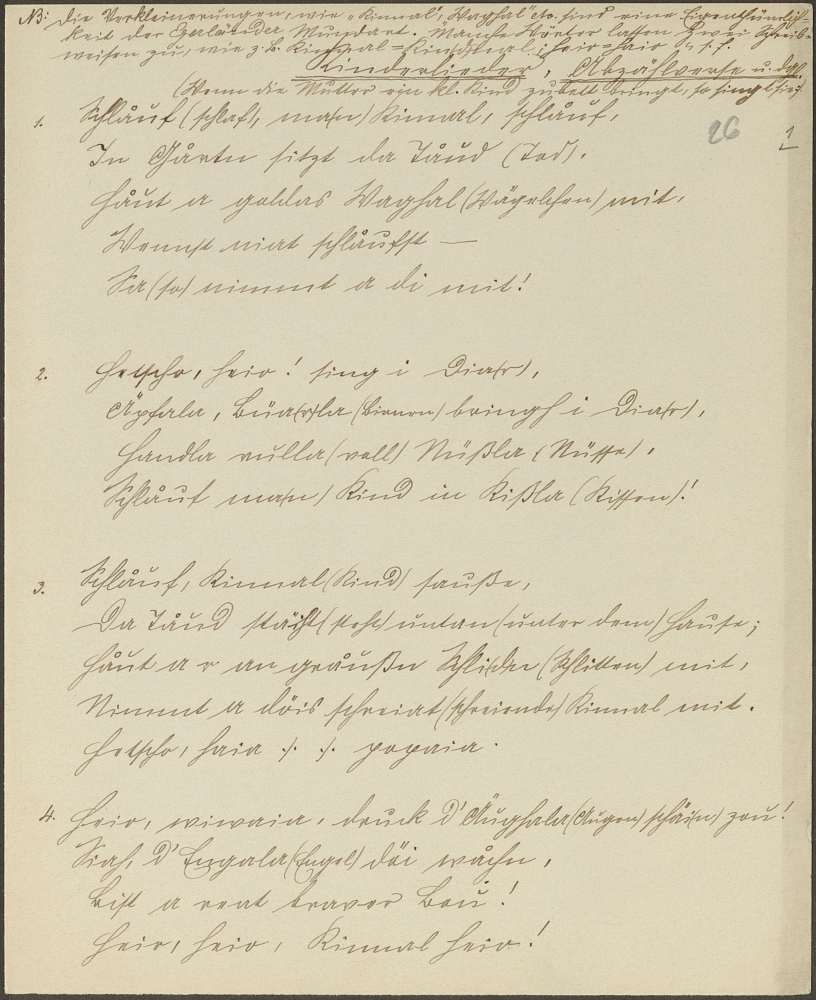 NB: Die Verkleinerungen, wie „Kinnal", Waghal" etc. sind eine Eigenthümlich-
keit der Egerländer Mundart. Manche Wörter lassen zwei Schreib-
weisen zu, wie z. B. Kinnal = Kindal; heio = haio u. s. f.
Kinderlieder, Abzählverse u. dgl.
(Wenn die Mutter ein kl. Kind zu Bett bringt, so singt sie:)
26
1
1. Schlåuf (schlaf), ma(n) Kinnal, schlåuf,
In Gårtn sitzt da Tåud (Tod),
Håut a goldas Waghal (Wägelchen) mit,
Wennst niat schlåufst —
Sa (so) nimmt a di mit!
2. Hetscho, heio! sing i Dia(r),
Äpfala, Büa(r)la (Birnen) bringh i Dia(r),
Handla vulla (voll) Nüßla (Nüsse),
Schlåuf ma(n) Kind in Kißla (Kissen)!
3. Schlåuf, Kinnal (Kind) sauße,
Da Tåud stäiht (steht) untan (unter dem) Hause;
Håut a r an gråußn Schli(d)n (Schlitten) mit,
Nimmt a döis schreiat (schreiende) Kinnal mit.
Hetscho, haia ./. ./. popaia.
4. Heio, wiwaia, druck d' Äughala (Augen) schäi(n) zou!
Siah, d' Engala (Engel) döi wåchn,
Bist a reat braver Bou!
Heio, heio, Kinnal heio!